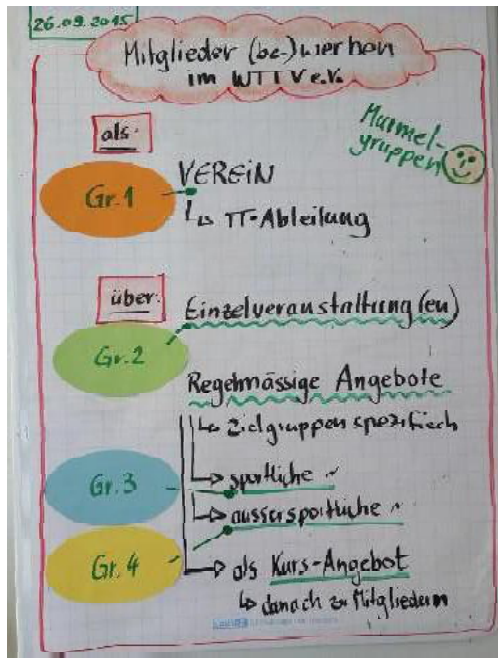 26.09.2015
Mitglieder (be-)werben
im WTTV e.V.
Murmel-
gruppen
als:
Gr.1
VEREiN
↳ TT-Abteilung
über:
Einzelveranstaltung(en)
Gr.2
Regelmässige Angebote
↳ zielgruppenspezifisch
Gr.3
→ sportliche "
→ aussersportliche "
Gr.4
→ als Kurs-Angebot
↳ danach zu Mitgliedern